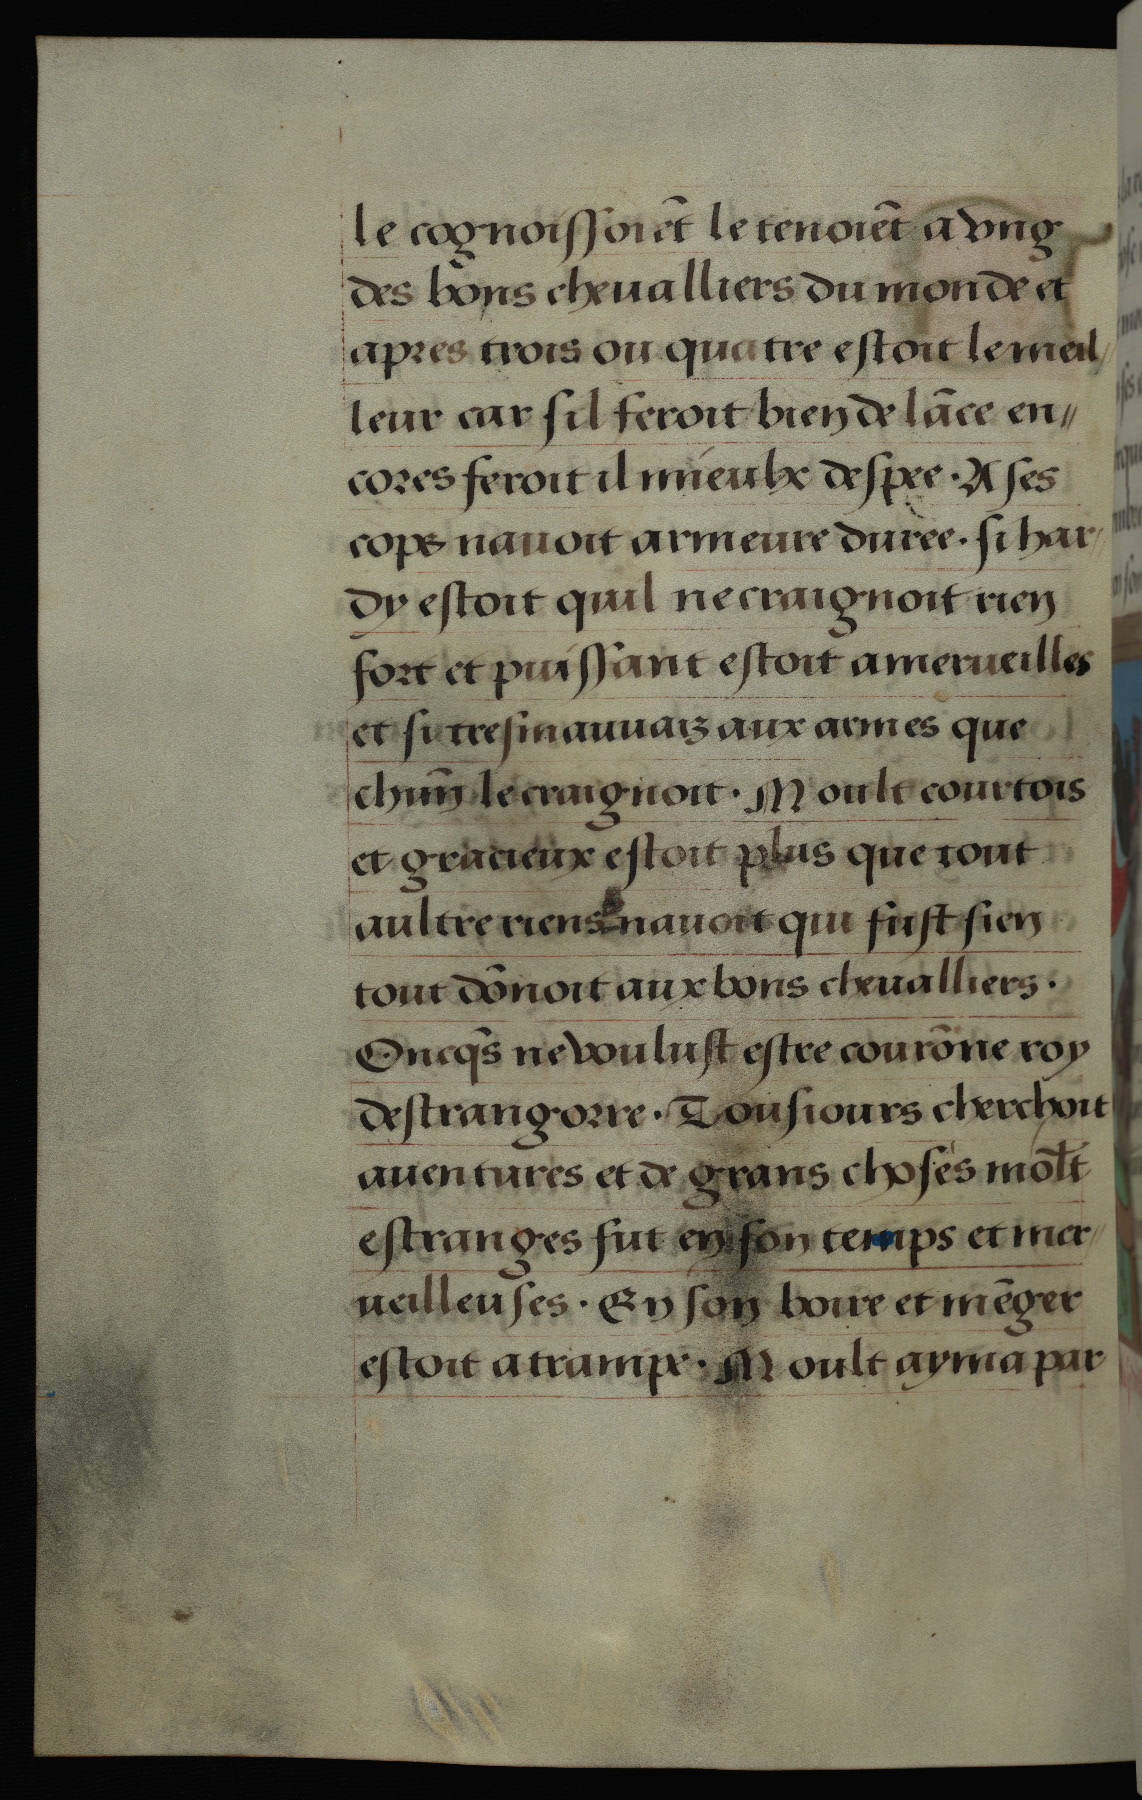 le cognoiſſoiēt le tenoiēt a vng
des bons cheualliers du monde et
apres trois ou quatre eſtoit le meil/
leur car ſil feroit bien de lāce en//
cores feroit il mieulx deſpee · A ſes
cops nauoit armeure duree · ſi har//
dy eſtoit quil ne craignoit rien
fort et puiſſant eſtoit a merueilles
et ſi treſmauuaiz aux armes que
chun̄ le craignoit · Moult courtois
et gracieux eſtoit plus que tout
aultre riens nauoit qui fuſt ſien
tout dōnoit aux bons cheualliers ·
Oncq̄s ne vouluſt eſtre courōne roy
deſtrangorre · Touſiours cherchoit
auentures et de grans choſes mōlt
eſtranges fut en ſon temps et mer//
ueilleuſes · En ſon boire et mēger
eſtoit atrampe · Moult ayma par